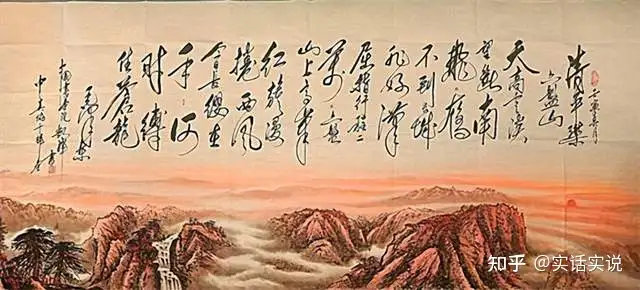 清平樂
六盘山
天高云淡
望断南
飞雁
不到长城
非好漢
屈指行程二
萬六盘
山上高峰
红旗漫
捲西风
今日长缨在
手何
时缚
住蒼龙
知乎 @实话实说